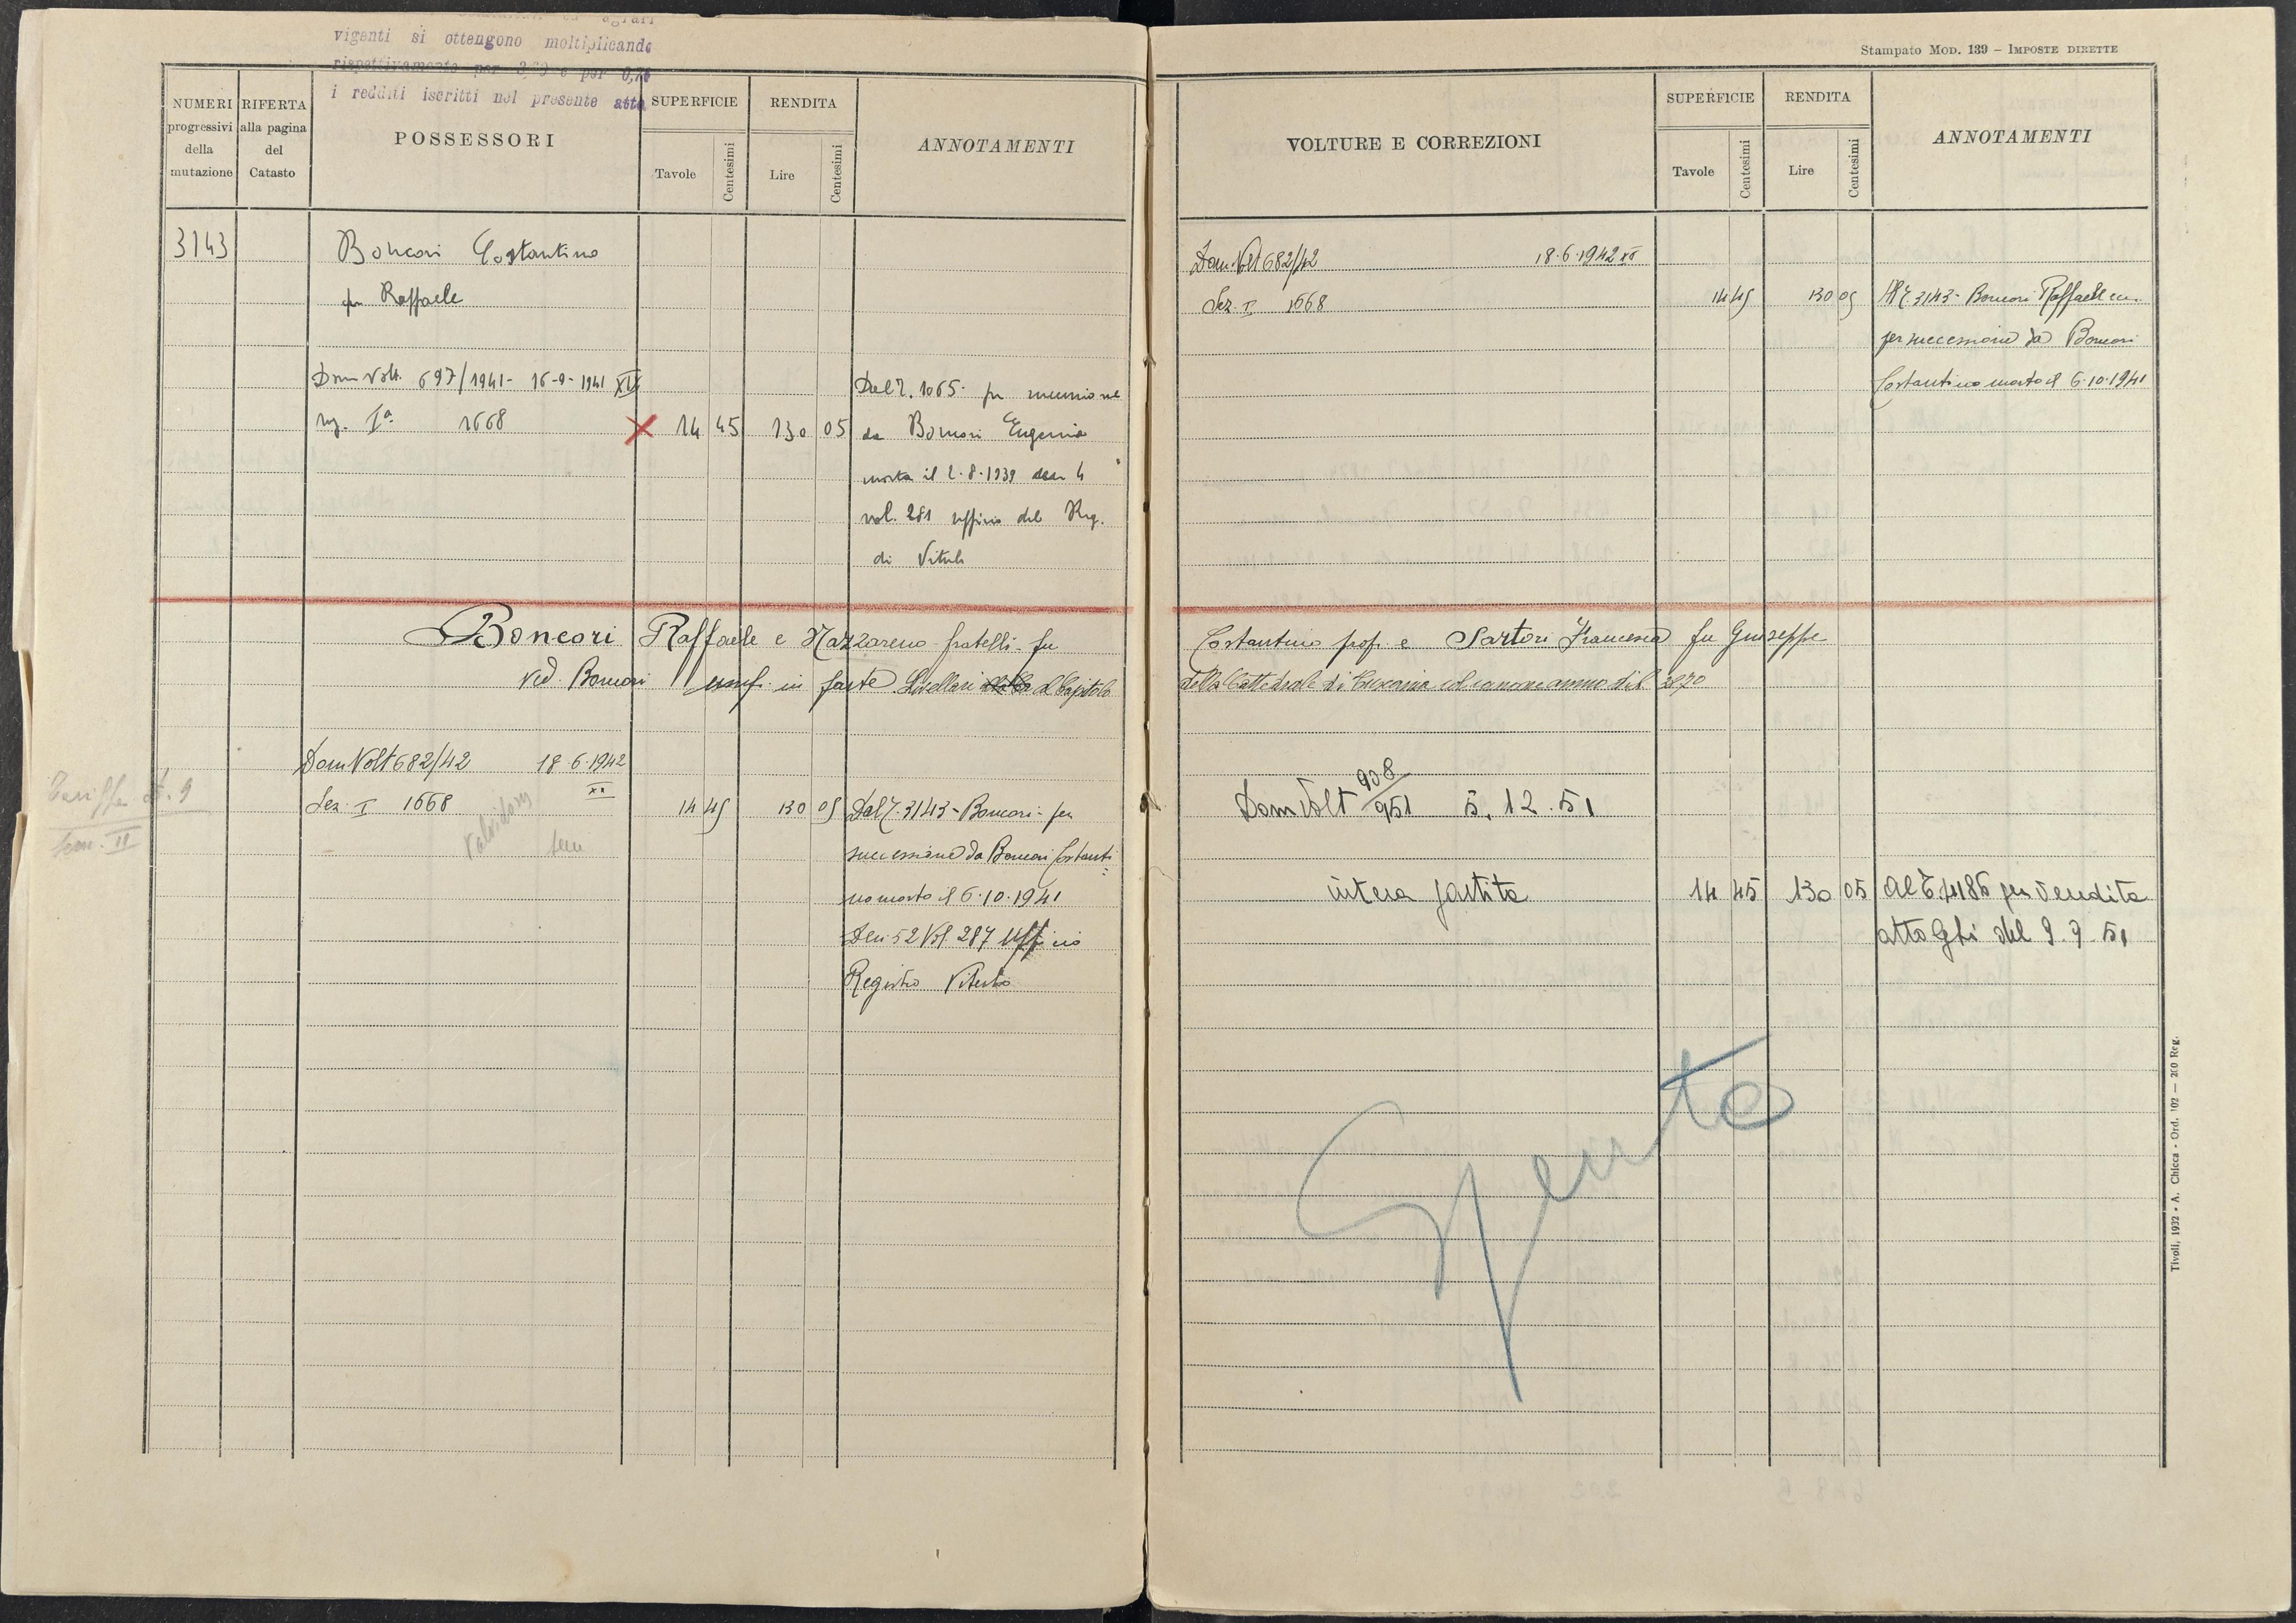 vigenti si ottengono moltiplicando
rispettivamente per e per 0,76
i redditi iscritti nel presente atto
NUMERI progressivi della mutazione
RIFERTA alla pagina del Catasto
POSSESSORI
SUPERFICIE
Tavole
Centesimi
RENDITA
Lire
Centesimi
ANNOTAMENTI
3143
Boncori Costantino
fu Raffaele
Dom Volt. 697/1941 - 16-9-1941 XIX
sez. Iª 1668 14 45 130 05
Dal T. 1065 per successione
da Boncori Eugenia
morta il 2-8-1939 den 4
vol. 281 ufficio del Reg.
di Viterbo
Boncori Raffaele e Nazzareno fratelli fu
ved. Boncori usuf. in parte Livellari al Capitolo
Dom Volt 682/42 18-6-1942
XX
Sez. I 1668 14 45 130 05
Dal T. 3143 - Boncori - per
successione da Boncori Costanti
no morto il 6-10-1941
Den 52 Vol. 287 Ufficio
Registro Viterbo
Tariffa
Stampato MOD. 139 – IMPOSTE DIRETTE
VOLTURE E CORREZIONI
SUPERFICIE
Tavole
Centesimi
RENDITA
Lire
Centesimi
ANNOTAMENTI
Dom Volt 682/42 18-6-1942 XX
Sez. I 1668 14 45 130 05
Al T. 3143 - Boncori Raffaele
per successione da Boncori
Costantino morto il 6-10-1941
Costantino prop. e Sartori Francesca fu Giuseppe
della Cattedrale di col canone annuo di £ 3870
Dom Volt 908/951 5.12.51
intera partita 14 45 130 05
al T. 4186 per vendita
atto del 9.9.51
Spento
Tivoli, 1932 - A. Chicca - Ord. 102 — 200 Reg.